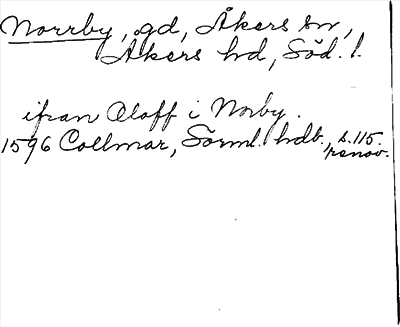 Norrby, gd, Åkers sn,
Åkers hd, Söd. l.
ifran Oloff i Norby.
1596 Collmar, Sörml. hdb, s. 115.
renov.